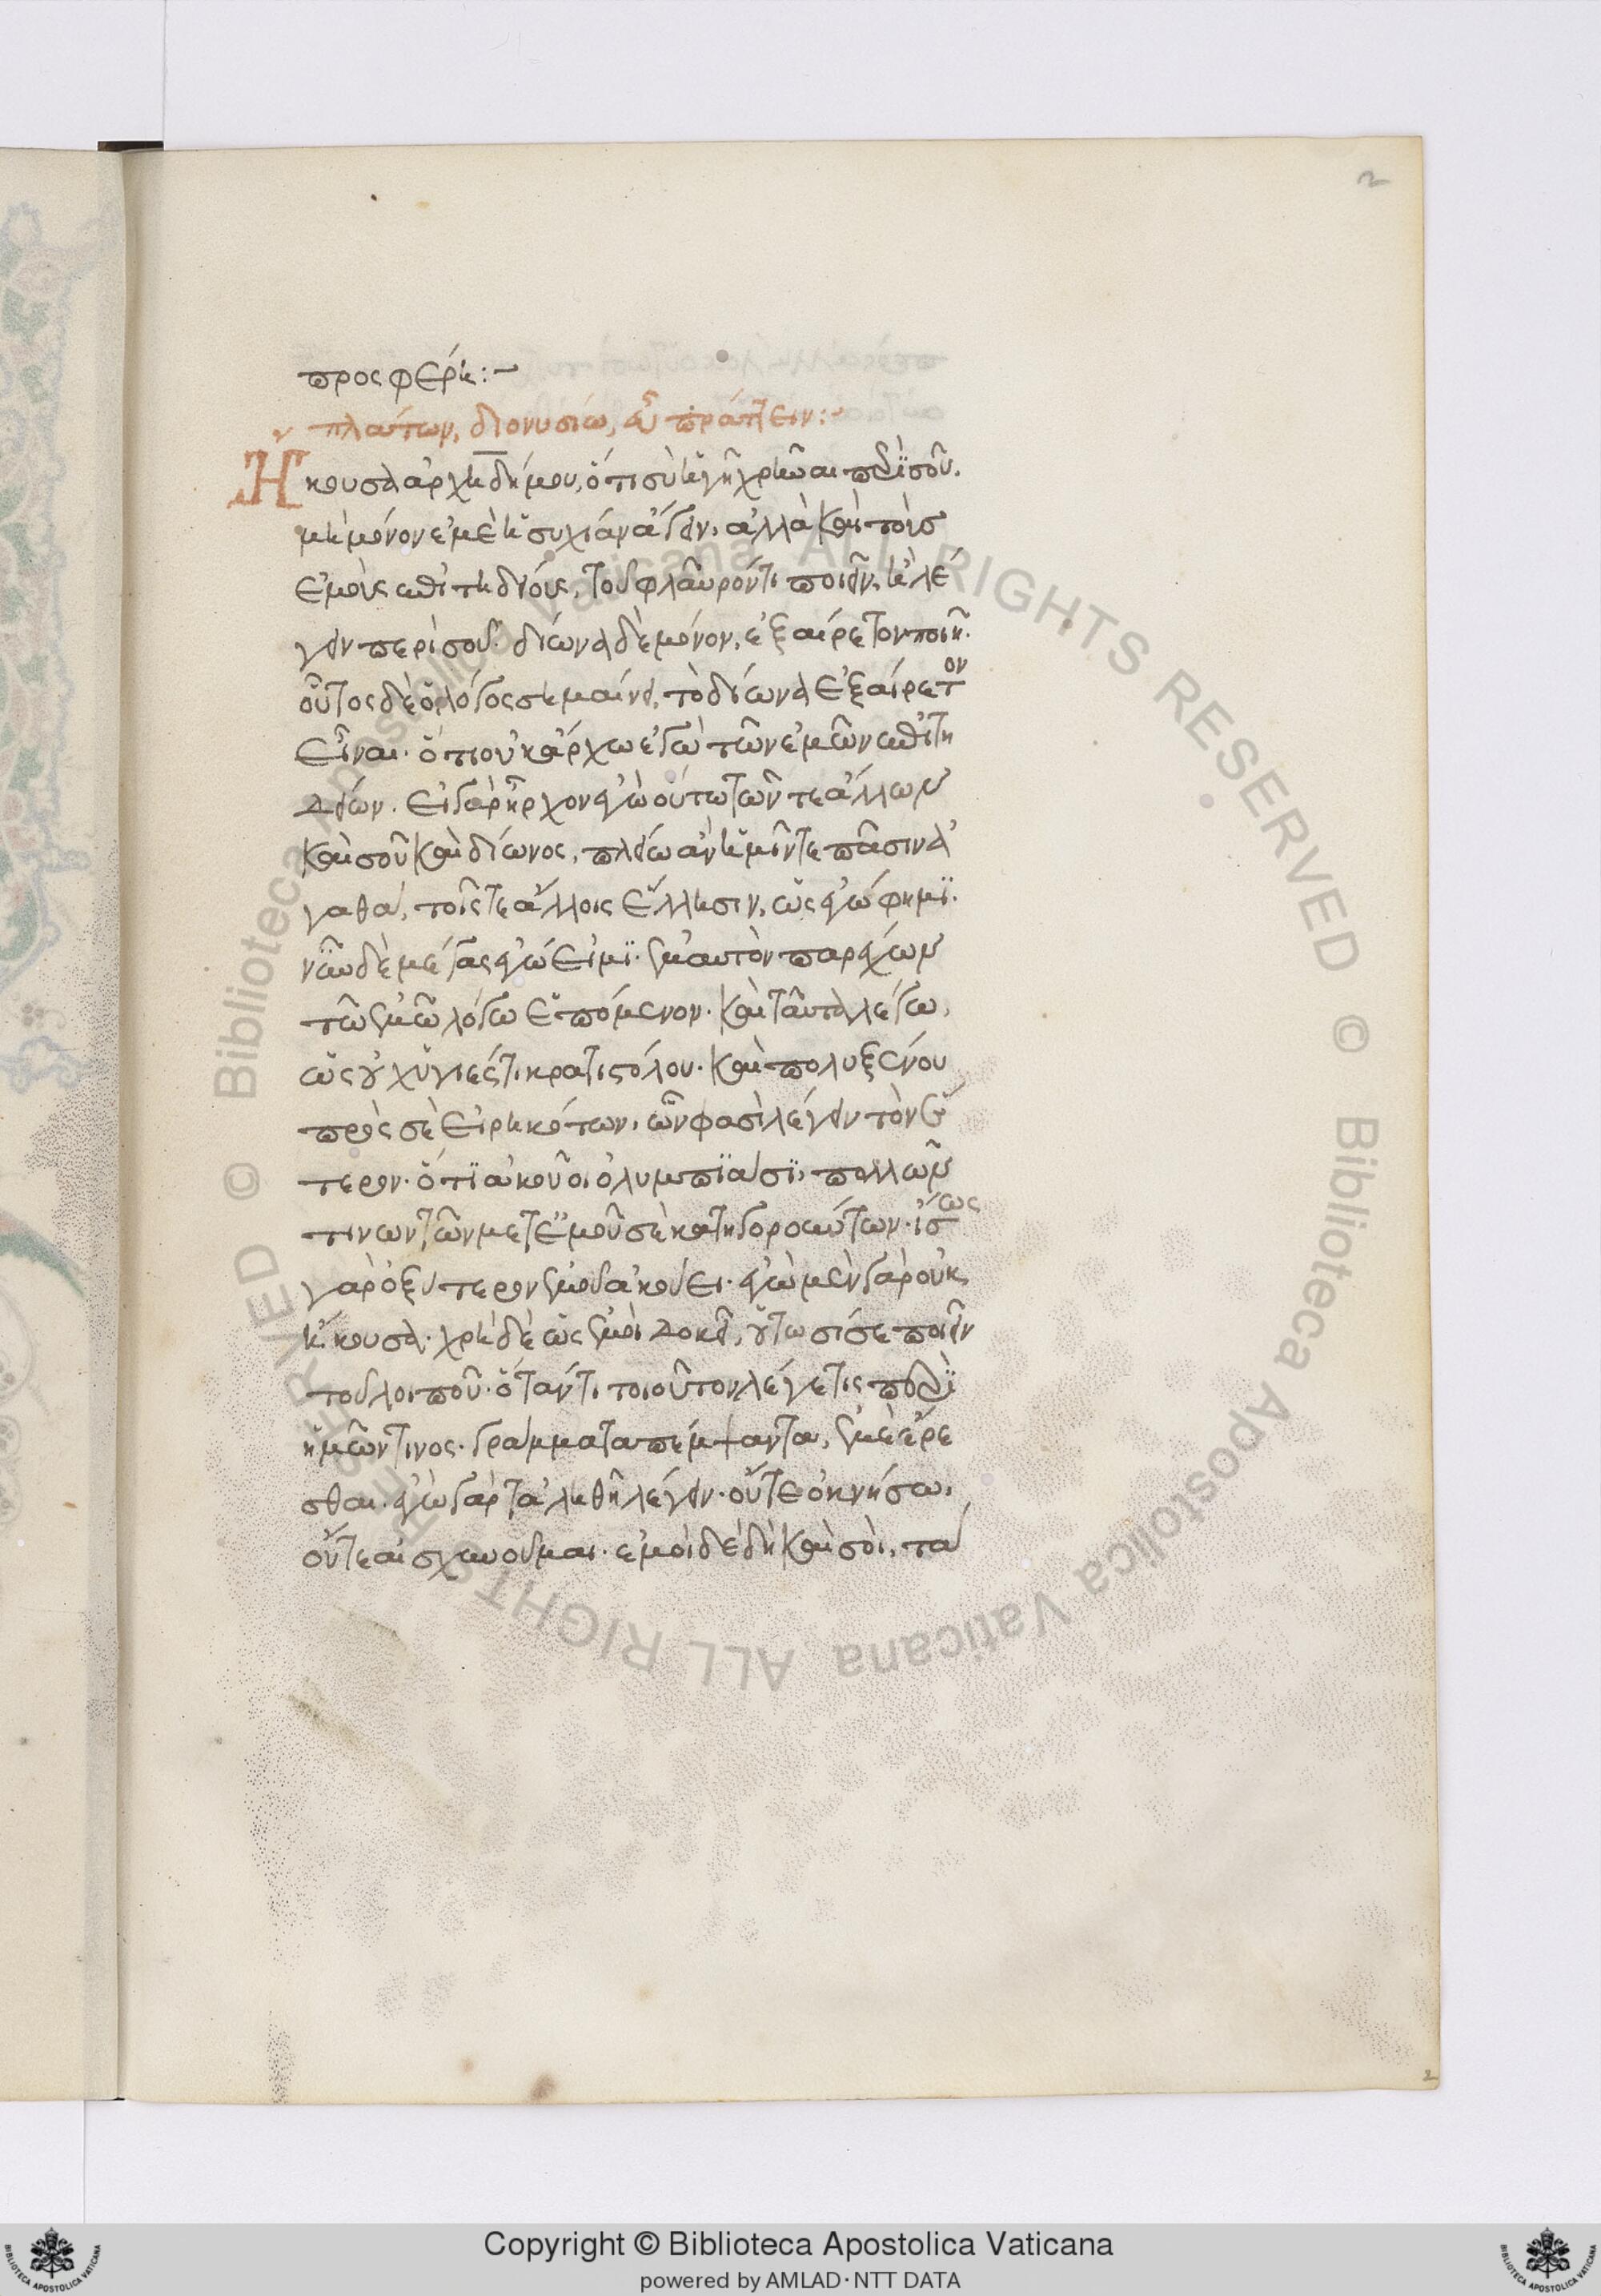 2
προσφέρη:~
πλάτων, διονυσίω, εὖ πράττειν:~
Ἤκουσα ἀρχεδήμου, ὅτι σὺ ἡγῆ χρῆναι περὶ σοῦ.
μὴ μόνον ἐμὲ ἡσυχίαν ἄγειν, ἀλλὰ καὶ τοὺσ
ἐμοὺς ἐπιτηδείους, τοῦ φλαῦρόν τι ποιεῖν, ἢ λέ
γειν περὶ σοῦ. δίωνα δὲ μόνον, ἐξαίρετον ποιῆ.
οὗτος δὲ ὁ λόγος σημαίνει, τὸ δίωνα ἐξαίρετον
εἶναι. ὅτι οὐκ ἄρχω ἐγὼ τῶν ἐμῶν ἐπιτη
δείων. εἰ γὰρ ἦρχον ἐγὼ οὕτω τῶν τε ἄλλων
καὶ σοῦ καὶ δίωνος, πλείω ἂν ἡμῖν τε πᾶσιν ἀ
γαθά, τοῖς τε ἄλλοις ἕλλησιν, ὡς ἐγώ φημϊ.
νῦν δὲ μέγας ἐγώ εἰμϊ. ἐμαυτὸν παρέχων
τῶ ἐμῶ λόγω ἑπόμενον. καὶ ταῦτα λέγω,
ὡς οὐχ ὑγιές τι κρατιστόλου. καὶ πολυξένου
πρὸς σὲ εἰρηκότων, ὧν φασὶ λέγειν τὸν ἕ
τερον. ὅτϊ ἀκούοι ὀλυμπϊάσϊ, πολλῶν
τινων τῶν μετ' ἐμοῦ σὲ κατηγορούντων. ἴσως
γὰρ ὀξύτερον ἐμοῦ ἀκούει. ἐγὼ μὲν γὰρ οὐκ
ἤκουσα. χρὴ δὲ ὡς ἐμοὶ δοκεῖ, οὕτωσί σε ποιεῖν
τοῦ λοιποῦ. ὅταν τι τοιοῦτον λέγη τις περὶ
ἡμῶν τινος. γράμματα πέμψαντα, ἐμὲ ἐρέ
σθαι. ἐγὼ γὰρ τἀληθῆ λέγειν. οὔτε ὀκνήσω,
οὔτε αἰσχυνοῦμαι. ἐμοὶ δὲ δὴ καὶ σοὶ, τὰ
2
© Biblioteca Apostolica Vaticana ALL RIGHTS RESERVED © Biblioteca Apostolica Vaticana ALL RIGHTS RESERVED
BIBLIOTECA APOSTOLICA VATICANA
Copyright © Biblioteca Apostolica Vaticana
powered by AMLAD·NTT DATA
BIBLIOTECA APOSTOLICA VATICANA